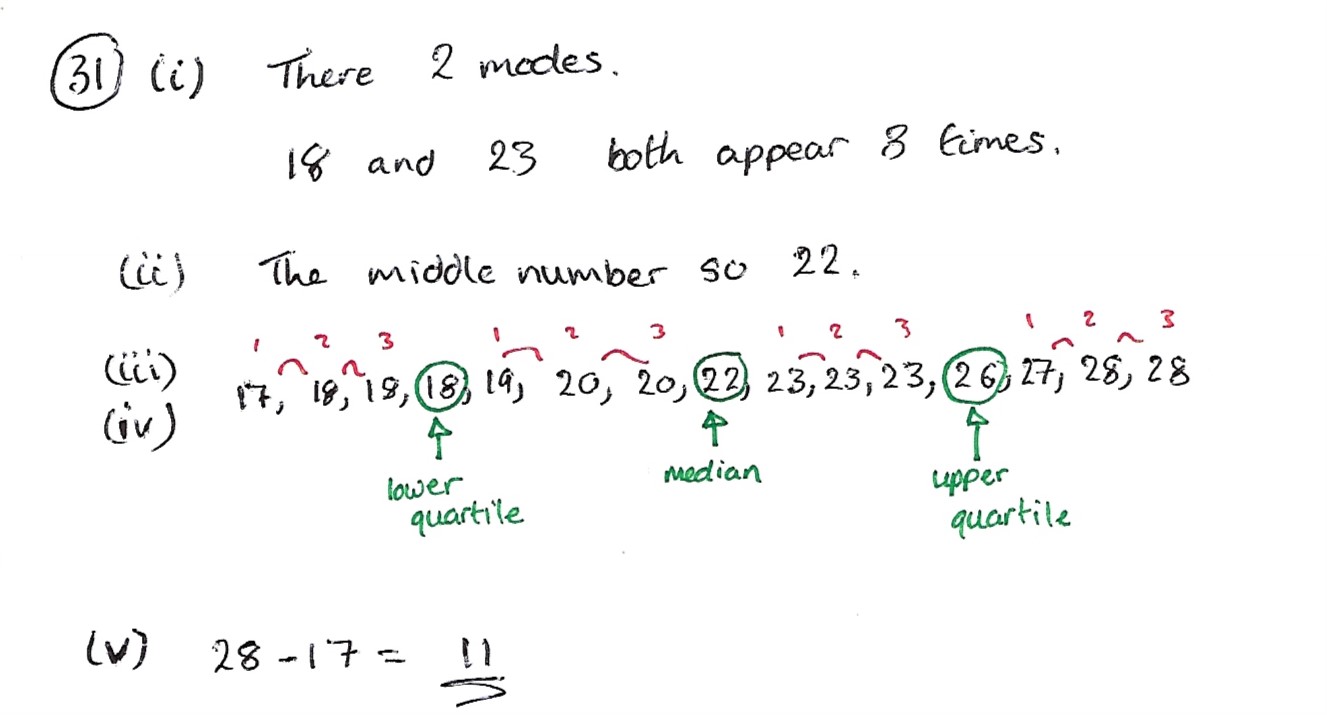 31 (i) There 2 modes.
18 and 23 both appear 3 times.
(ii) The middle number so 22.
1 2 3 1 2 3 1 2 3 1 2 3
(iii) 17, 18, 18, 18, 19, 20, 20, 22, 23, 23, 23, 26, 27, 28, 28
(iv)
lower quartile
median
upper quartile
(v) 28 - 17 = 11